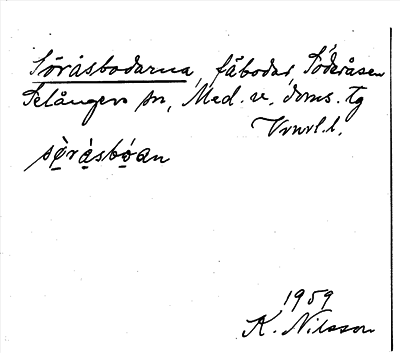 Söråsbodarna, fäbodar, Söderåsen
Selångers sn, Med. v. doms. tg
Vrnrl. l.
sö̀rásbo̤an
1959
K. Nilsson